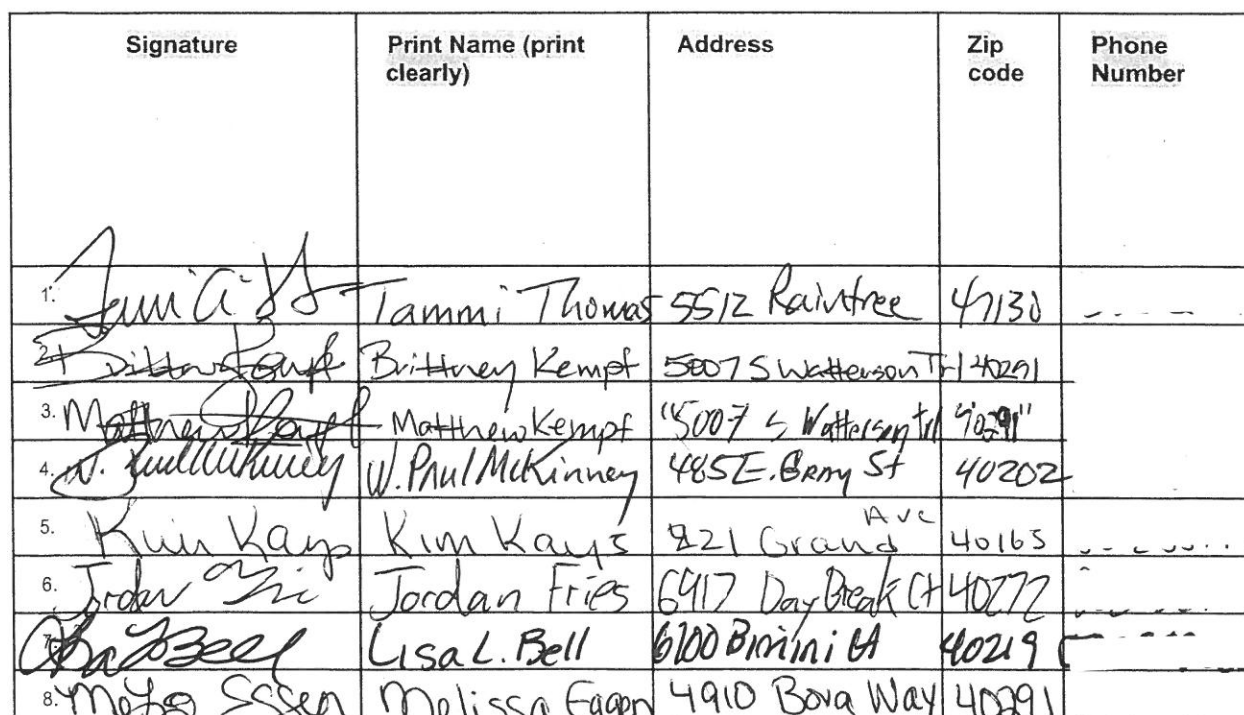 Signature Print Name (print clearly) Address Zip code Phone Number
1. Tammi Thomas 5512 Raintree 47130
2. Brittney Kempf Brittney Kempf 5007 S Watterson Trl 40291
3. Matthew Kempf Matthew Kempf "5007 S Watterson trl "40291"
4. W. Paul McKinney W. Paul McKinney 485 E. Gray St 40202
5. Kim Kays Kim Kays 821 Grand Ave 40165
6. Jordan Fries 6917 Day Break Ct 40272
7. Lisa L. Bell 6700 Bimini Ct 40219
8. Melissa Eagen 4910 Bova Way 40291